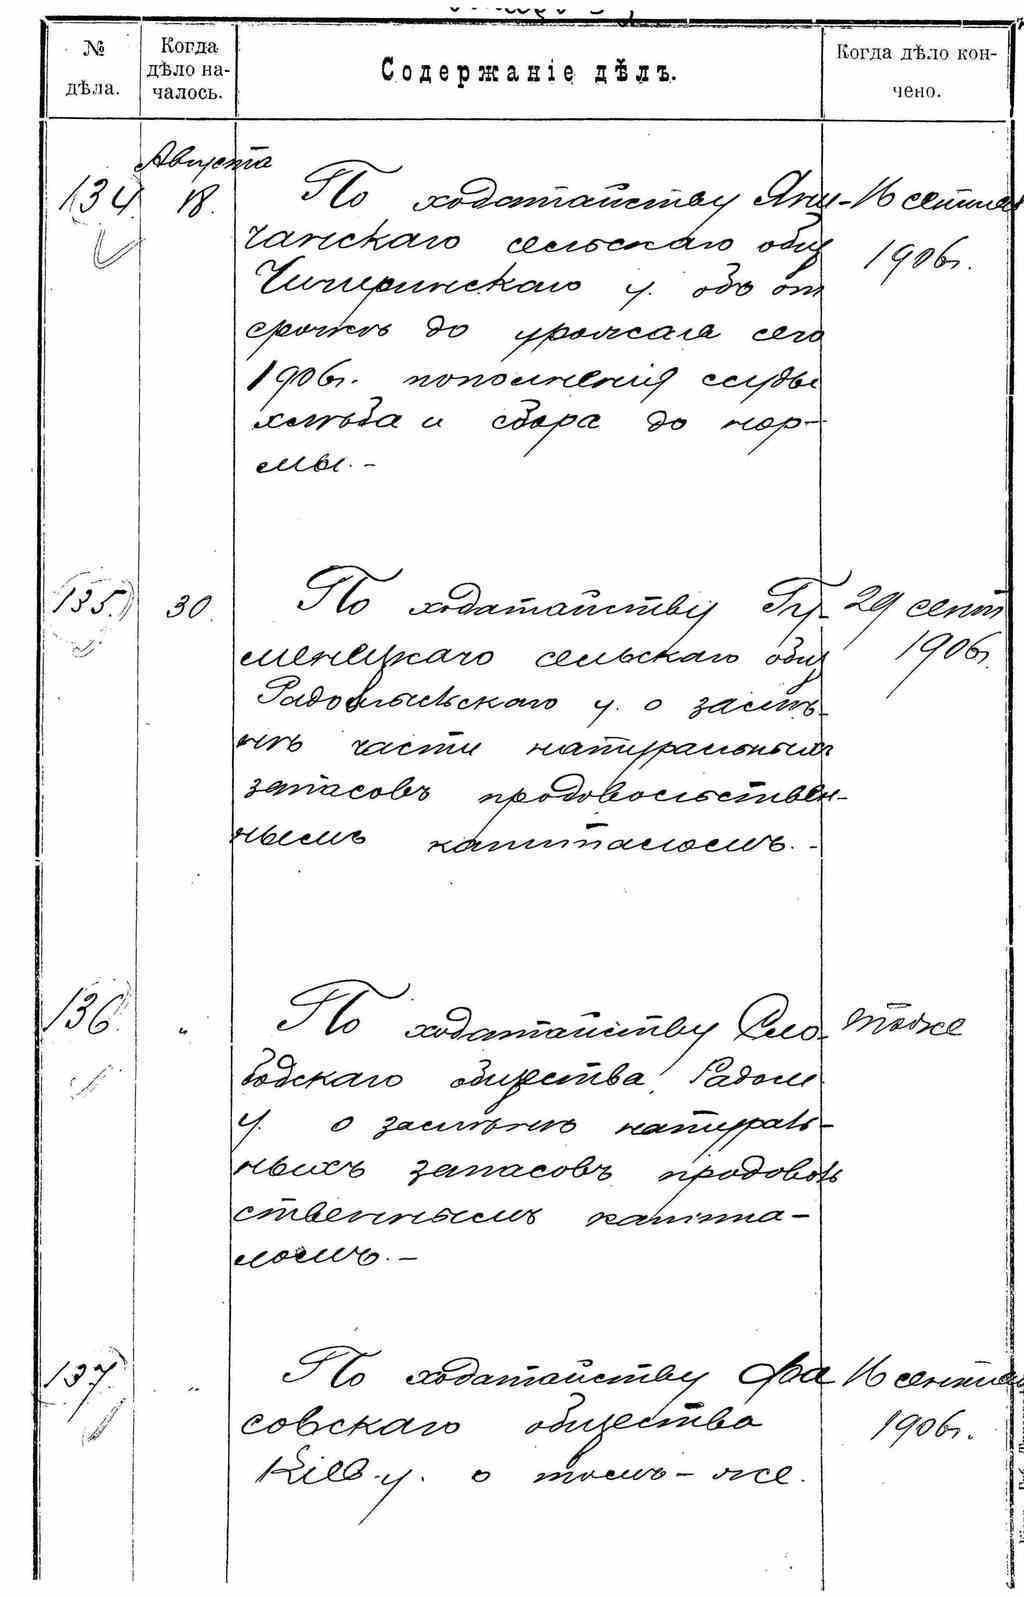 № дѣла.
Когда дѣло на-
чалось.
Содержаніе дѣлъ.
Когда дѣло кон-
чено.
Августа
134. 18. По ходатайству Яни- 16 сентяб
чанскаго сельскаго общ 1906г.
Чигиринскаго у. объ от
срочкѣ до урожая сего
1906г. пополненія ссуды
хлѣба и сбора до нор-
мы.-
135. 30. По ходатайству Гу- 29 сент
менецкаго сельскаго общ 1906г.
Радомысльскаго у. о замѣ-
нѣ части натуральныхъ
запасовъ продовольствен-
нымъ капиталомъ.-
136. " По ходатайству Сло- тоже
бодскаго общества Радом
у. о замѣнѣ натураль-
ныхъ запасовъ продоволь
ственнымъ капита-
ломъ.-
137. " По ходатайству Фа 16 сентяб
совскаго общества 1906г.
Кіев. у. о томъ-же.